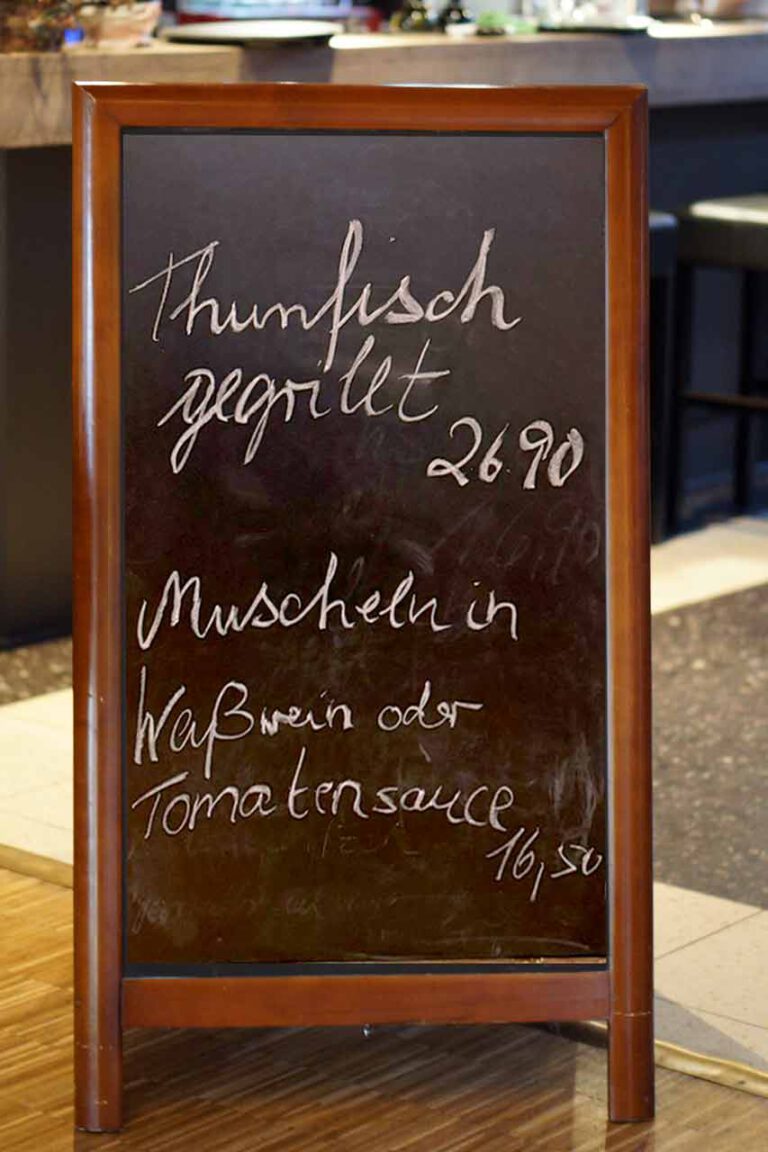 Thunfisch
gegrillt
26.90
Muscheln in
Waßwein oder
Tomatensauce
16,50